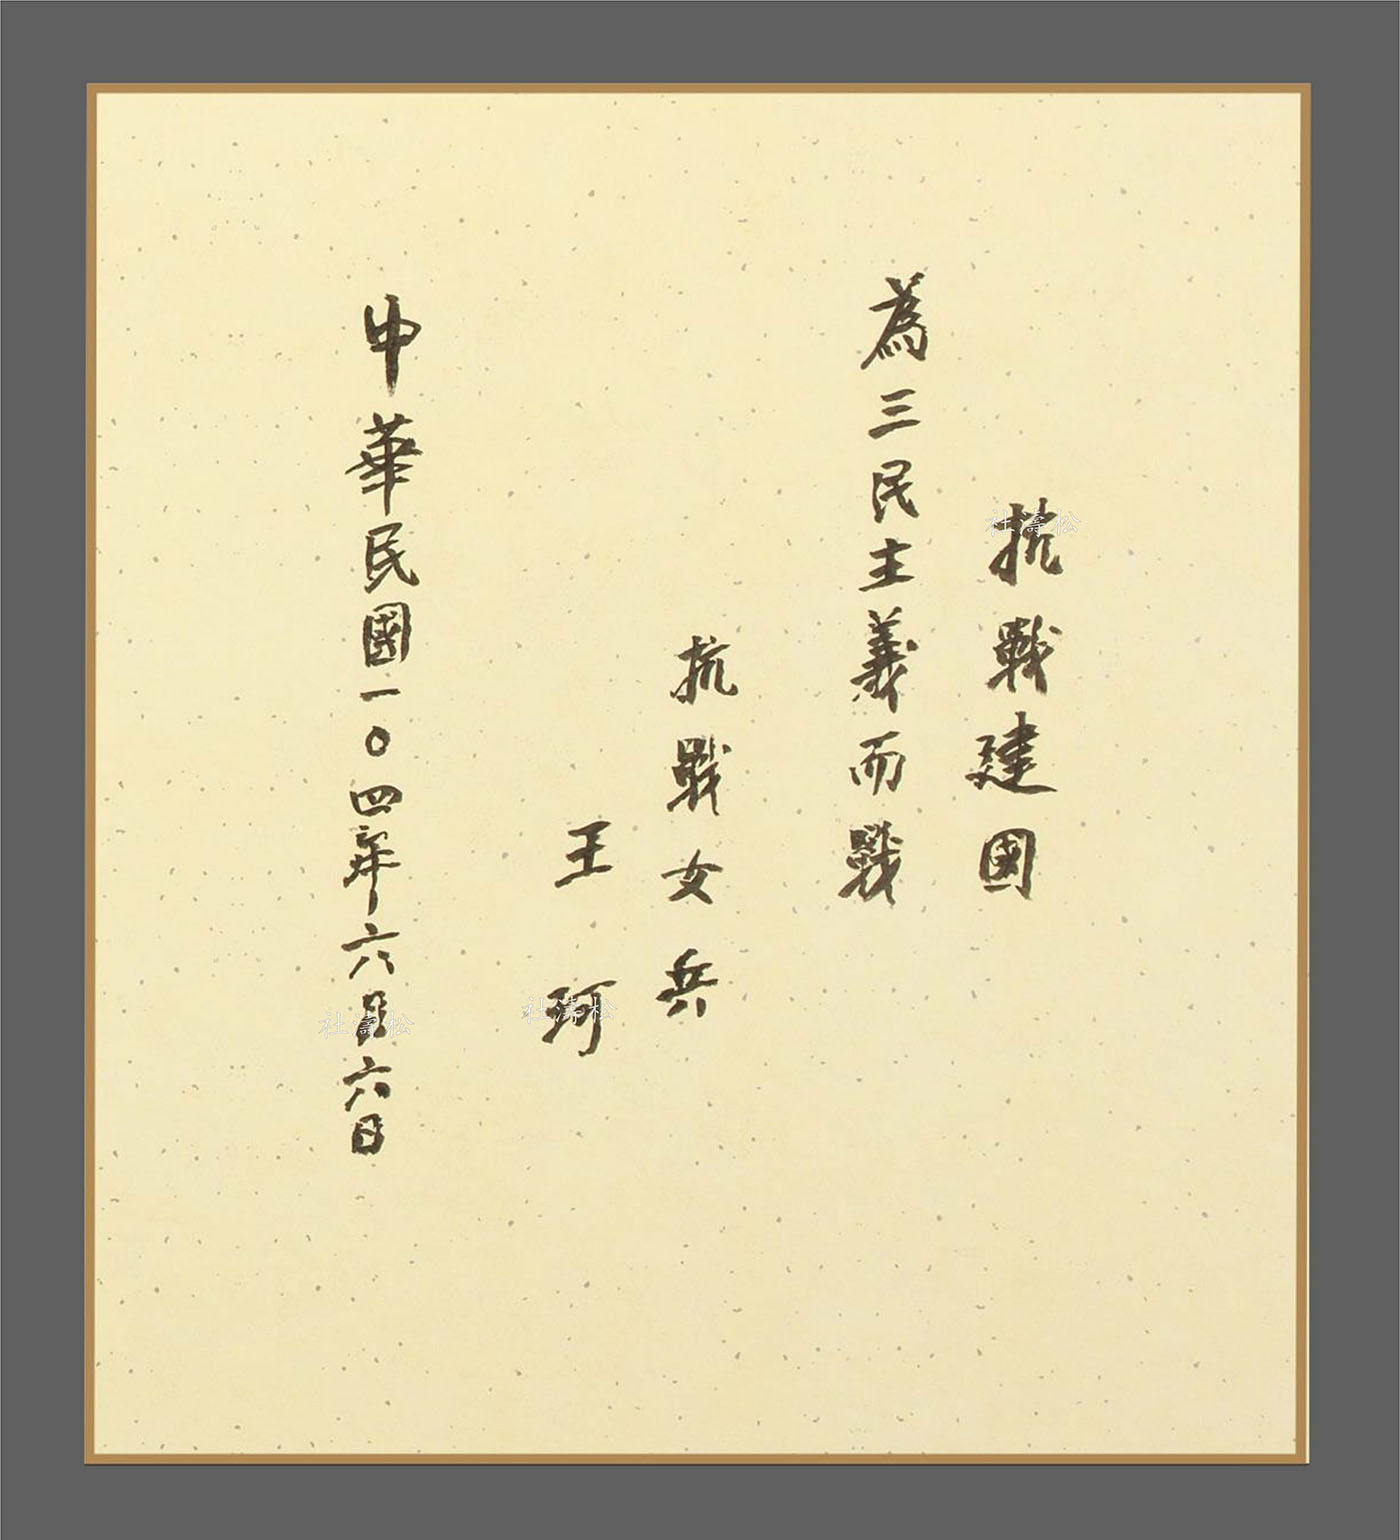 抗戰建國
為三民主義而戰
抗戰女兵
王珂
中華民國一〇四年六月六日
社濤松
社濤松
社濤松